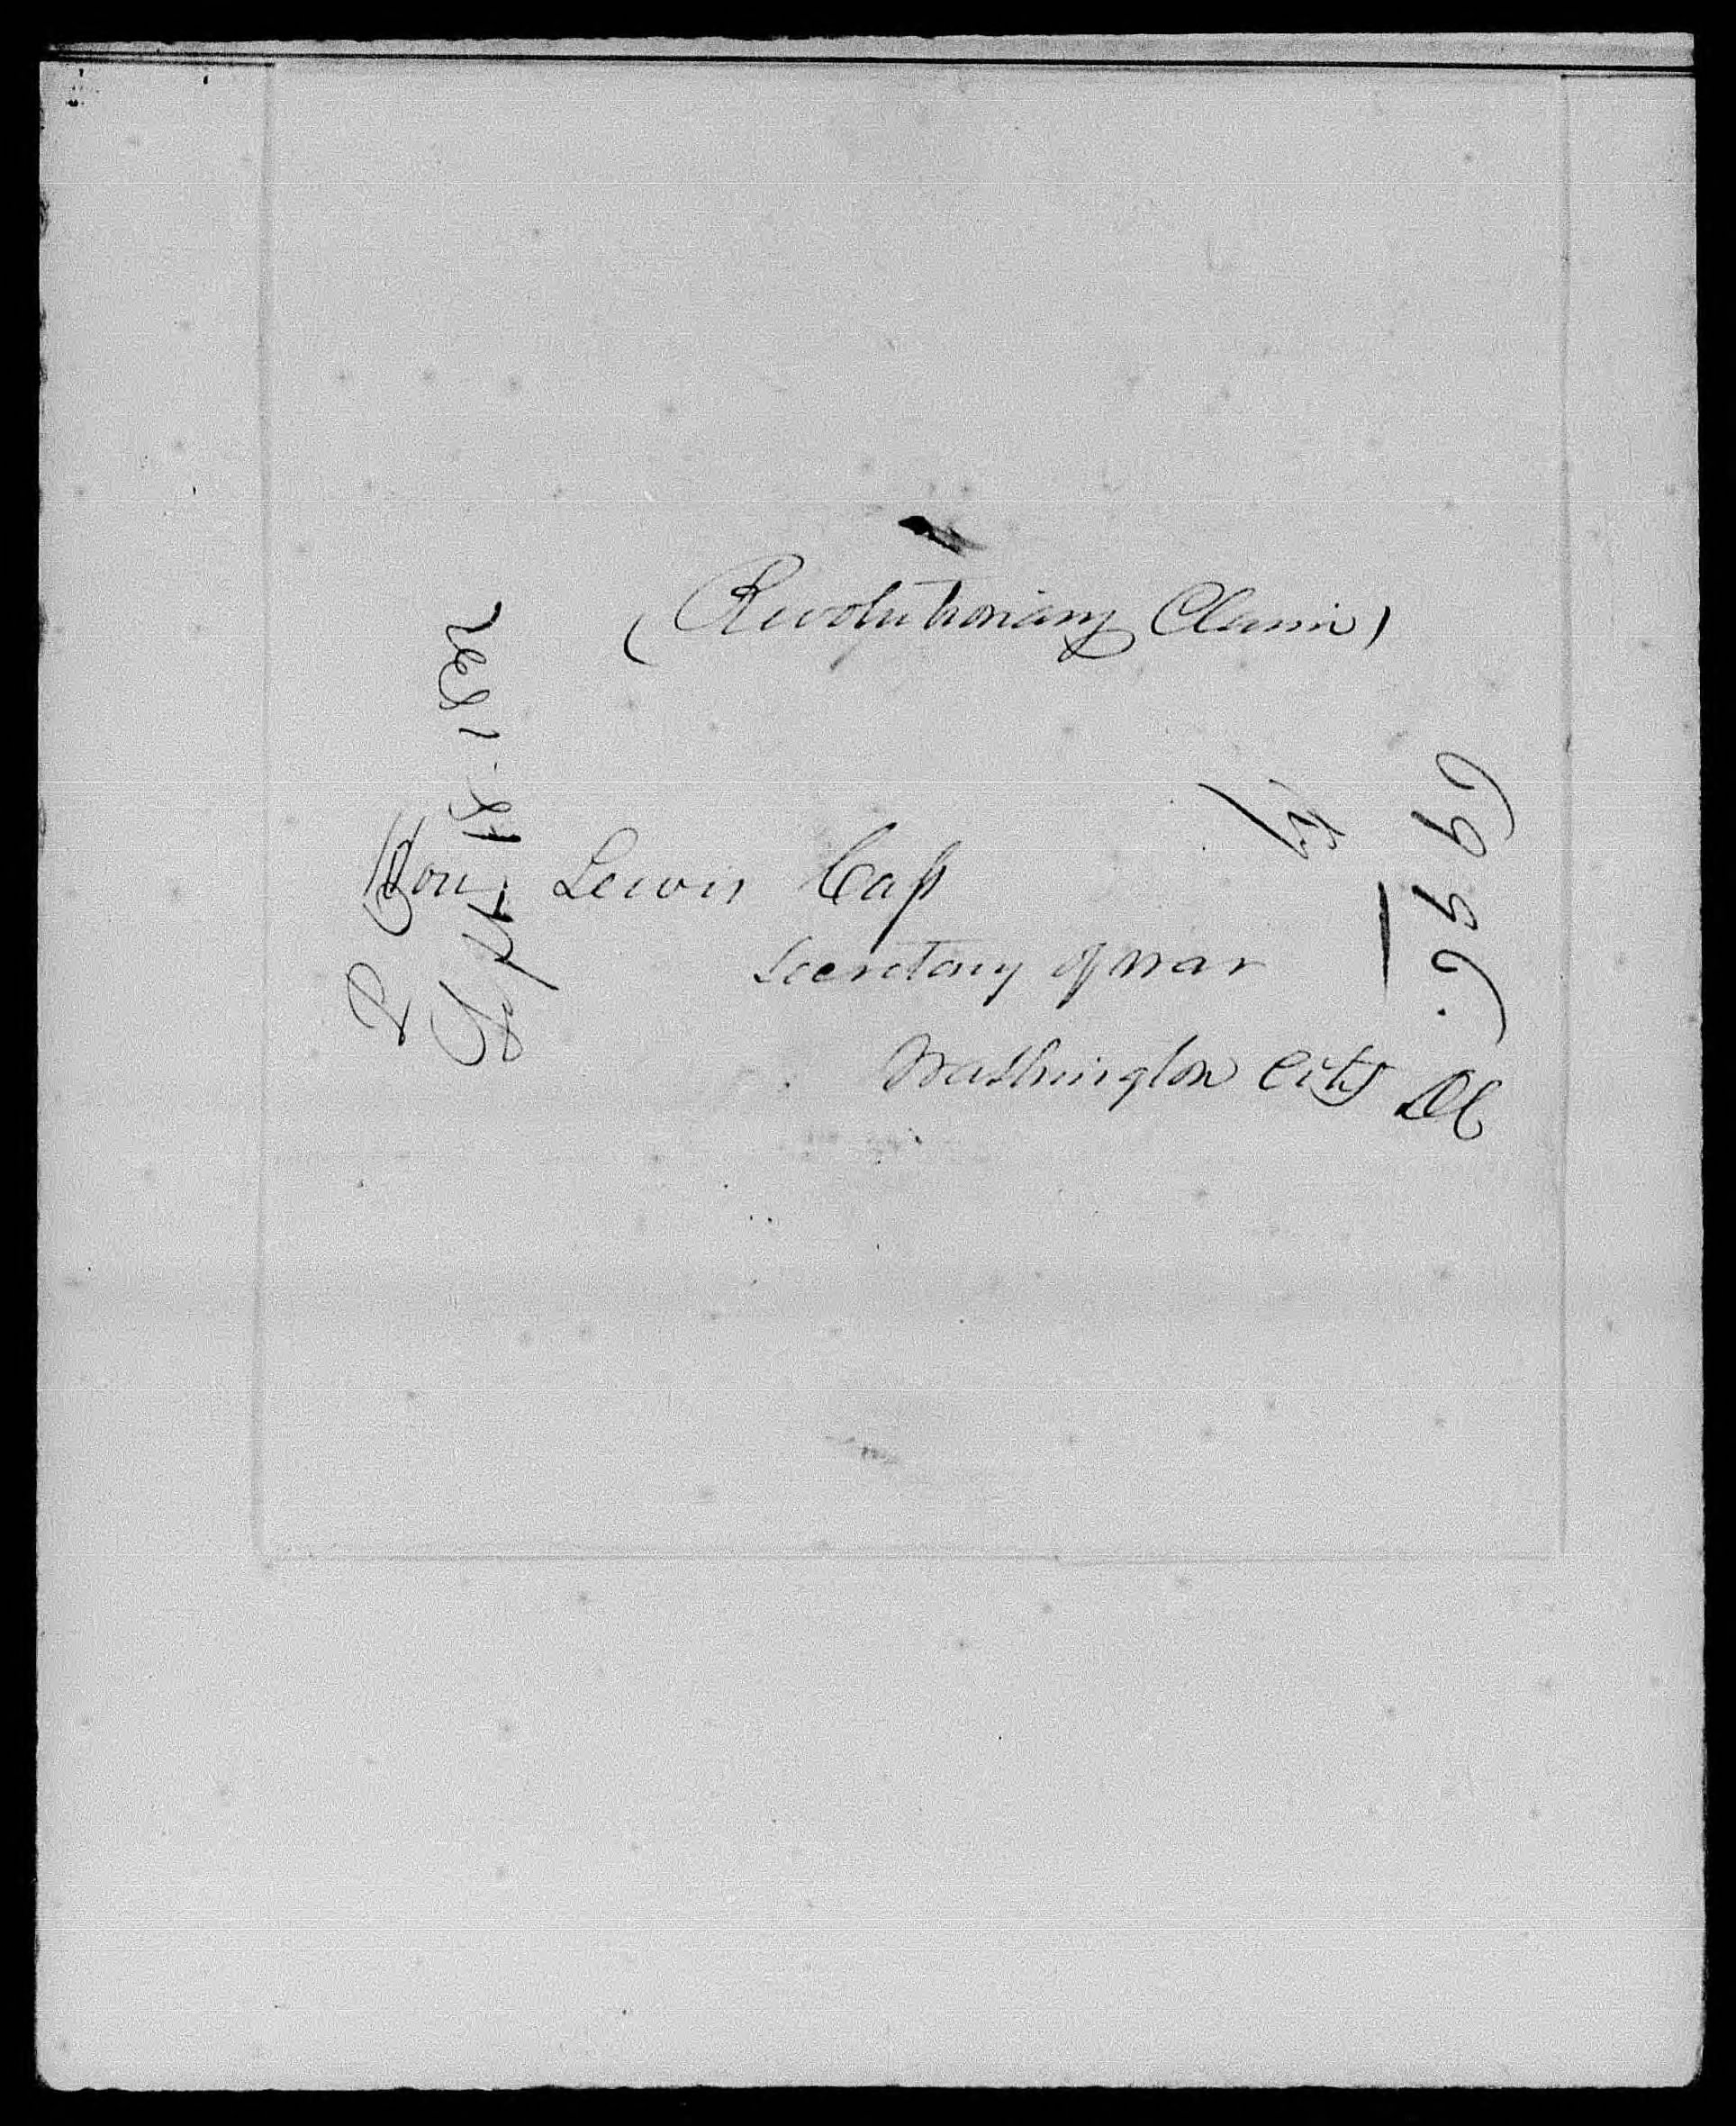 (Revolutionary Claim)
Hon. Lewis Cass
Secretary of War
Washington City DC
R
Sept 18. 1832